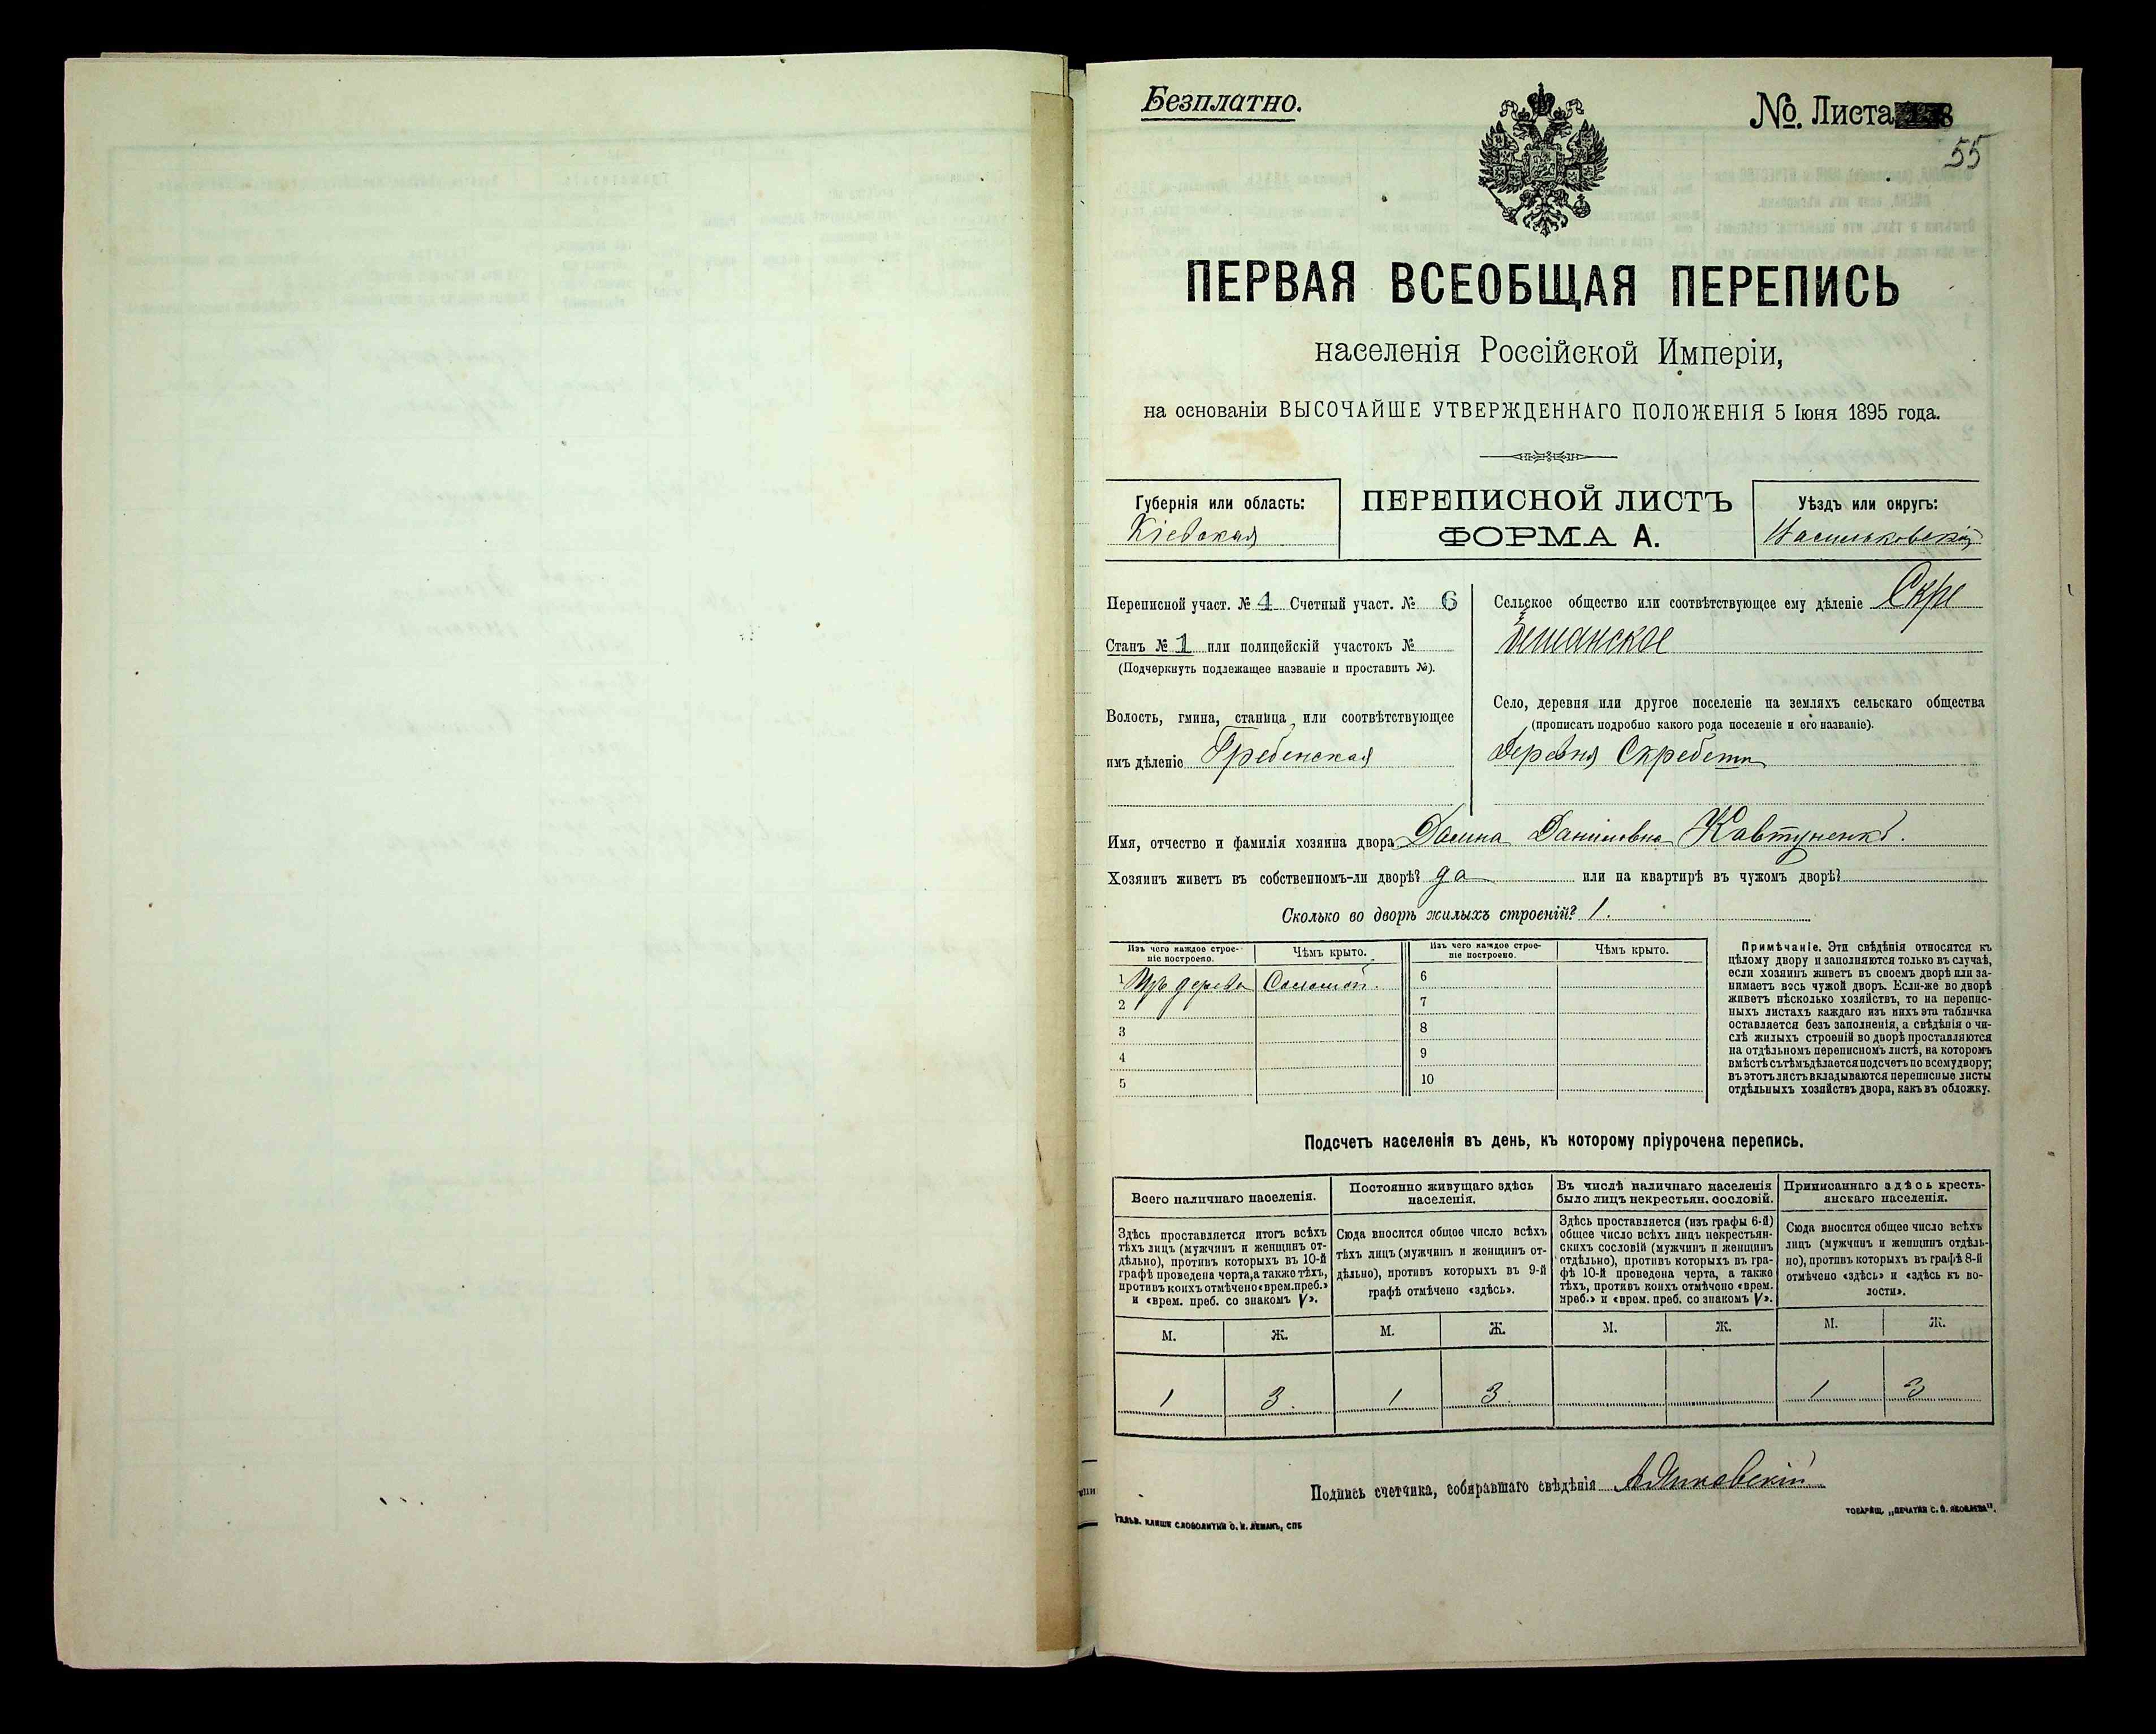 Безплатно.
№. Листа
55
ПЕРВАЯ ВСЕОБЩАЯ ПЕРЕПИСЬ
населенія Россійской Имперіи,
на основаніи ВЫСОЧАЙШЕ УТВЕРЖДЕННАГО ПОЛОЖЕНІЯ 5 Іюня 1895 года.
Губернія или область:
Кіевская
ПЕРЕПИСНОЙ ЛИСТЪ
ФОРМА А.
Уѣздъ или округъ:
Васильковскій
Переписной участ. № 4 Счетный участ. № 6
Станъ № 1 или полицейскій участокъ №
(Подчеркнуть подлежащее названіе и проставить №).
Волость, гмина, станица, или соотвѣтствующее
имъ дѣленіе Гребенская
Сельское общество или соотвѣтствующее ему дѣленіе Скре
бешанское
Село, деревня или другое поселеніе на земляхъ сельскаго общества
(прописать подробно какого рода поселеніе и его названіе).
Деревня Скребеши
Имя, отчество и фамилія хозяина двора Даниловна Ковтуненко.
Хозяинъ живетъ въ собственномъ-ли дворѣ? да или на квартирѣ въ чужомъ дворѣ?
Сколько во дворѣ жилыхъ строеній? 1.
Изъ чего каждое строе-
ніе построено.
Чѣмъ крыто.
Изъ чего каждое строе-
ніе построено.
Чѣмъ крыто.
1 Изъ дерева Соломой.
2
3
4
5
6
7
8
9
10
Примѣчаніе. Эти свѣдѣнія относятся къ
цѣлому двору и заполняются только въ случаѣ,
если хозяинъ живетъ въ своемъ дворѣ или за-
нимаетъ весь чужой дворъ. Если-же во дворѣ
живетъ нѣсколько хозяйствъ, то на перепис-
ныхъ листахъ каждаго изъ нихъ эта табличка
оставляется безъ заполненія, а свѣдѣнія о чи-
слѣ жилыхъ строеній во дворѣ проставляются
на отдѣльномъ переписномъ листѣ, на которомъ
вмѣстѣ съ тѣмъ дѣлается подсчетъ по всему двору;
въ этотъ листъ вкладываются переписные листы
отдѣльныхъ хозяйствъ двора, какъ въ обложку.
Подсчетъ населенія въ день, къ которому пріурочена перепись.
Всего наличнаго населенія.
Здѣсь проставляется итогъ всѣхъ
тѣхъ лицъ (мужчинъ и женщинъ от-
дѣльно), противъ которыхъ въ 10-й
графѣ проведена черта, а также тѣхъ,
противъ коихъ отмѣчено «врем. преб.»
и «врем. преб. со знакомъ V».
Постоянно живущаго здѣсь
населенія.
Сюда вносится общее число всѣхъ
тѣхъ лицъ (мужчинъ и женщинъ от-
дѣльно), противъ которыхъ въ 9-й
графѣ отмѣчено «здѣсь».
Въ числѣ наличнаго населенія
было лицъ некрестьян. сословій.
Здѣсь проставляется (изъ графы 6-й)
общее число всѣхъ лицъ некрестьян-
скихъ сословій (мужчинъ и женщинъ
отдѣльно), противъ которыхъ въ гра-
фѣ 10-й проведена черта, а также
тѣхъ, противъ коихъ отмѣчено «врем.
преб.» и «врем. преб. со знакомъ V».
Приписаннаго здѣсь кресть-
янскаго населенія.
Сюда вносится общее число всѣхъ
лицъ (мужчинъ и женщинъ отдѣль-
но), противъ которыхъ въ графѣ 8-й
отмѣчено «здѣсь» и «здѣсь къ во-
лости».
М. Ж. М. Ж. М. Ж. М. Ж.
1 3. 1 3. 1 3
Подпись счетчика, собиравшаго свѣдѣнія
ГАЛЬВ. КЛИШЕ СЛОВОЛИТНИ О. И. ЛЕМАНЪ, СПБ
ТОВАРИЩ. „ПЕЧАТНЯ С. П. ЯКОВЛЕВА".